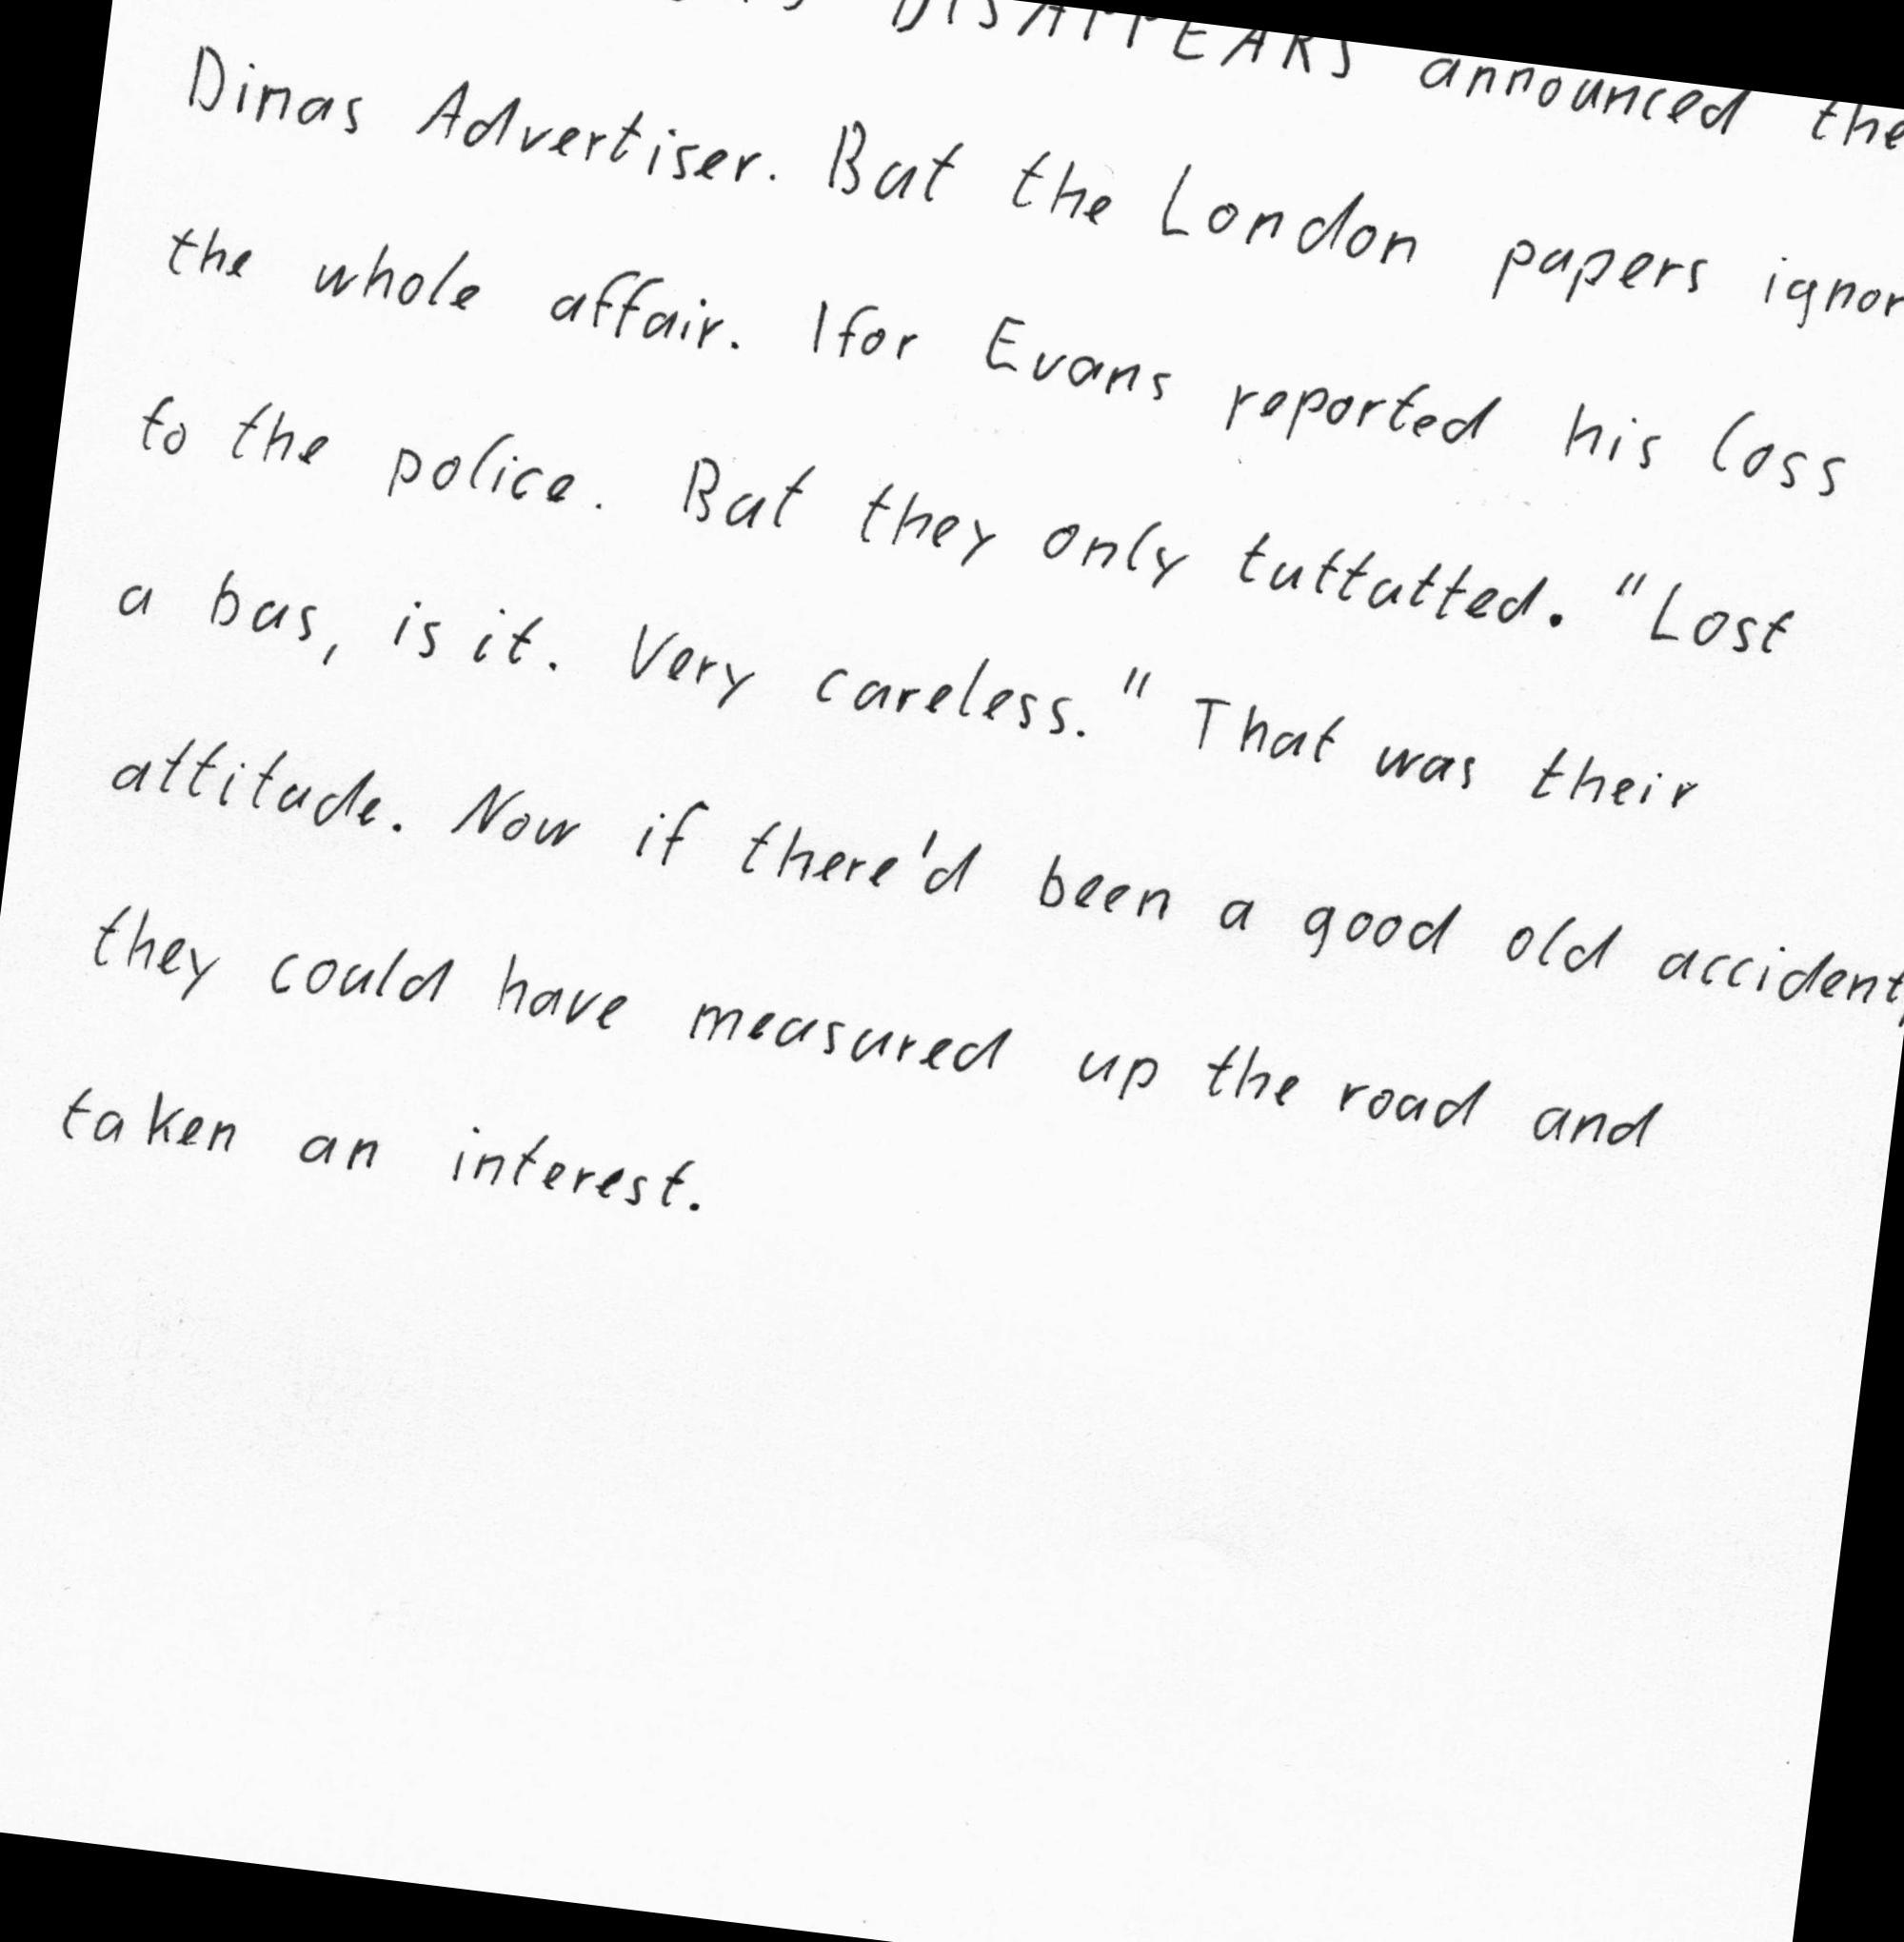 DISAPPEARS announced the
Dinas Advertiser. But the London papers ignor
the whole affair. Ifor Evans reported his loss
to the police. But they only tuttutted. "Lost
a bus, is it. Very careless." That was their
attitude. Now if there'd been a good old accident,
they could have measured up the road and
taken an interest.